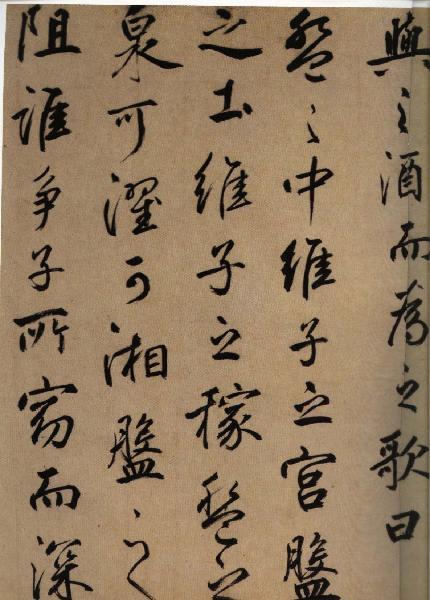 與之酒而為之歌曰
盤之中維子之宮盤
之土維子之稼盤之
泉可濯可湘盤之
阻誰争子所窈而深